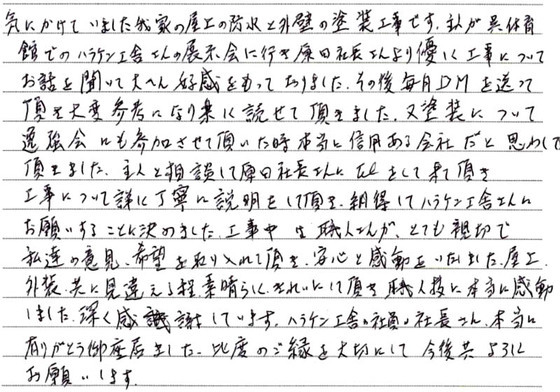 気にかけていました我家の屋上の防水と外壁の塗装工事です。主人が県体育
館でのハラケン工舎さんの展示会に行き原田社長さんより優しく工事について
お話を聞いて大へん好感をもっておりました。その後毎月DMを送って
頂き大変参考になり楽しく読せて頂きました。又塗装について
勉強会にも参加させて頂いた時本当に信用ある会社だと思わして
頂きました。主人と相談して原田社長さんにTELをして来て頂き
工事について詳しく丁寧に説明をして頂き、納得してハラケン工舎さんに
お願いすることに決めました。工事中も職人さんが、とても親切で
私達の意見、希望を取り入れて頂き、安心と感動をいたしました。屋上、
外装、共に見違える程素晴らしく、きれいにして頂き職人技に本当に感動
しました。深く感謝しています。ハラケン工舎の社員の社長さん、本当に
有りがとう御座居ました。此度のご縁を大切にして今後共よろしく
お願いします。